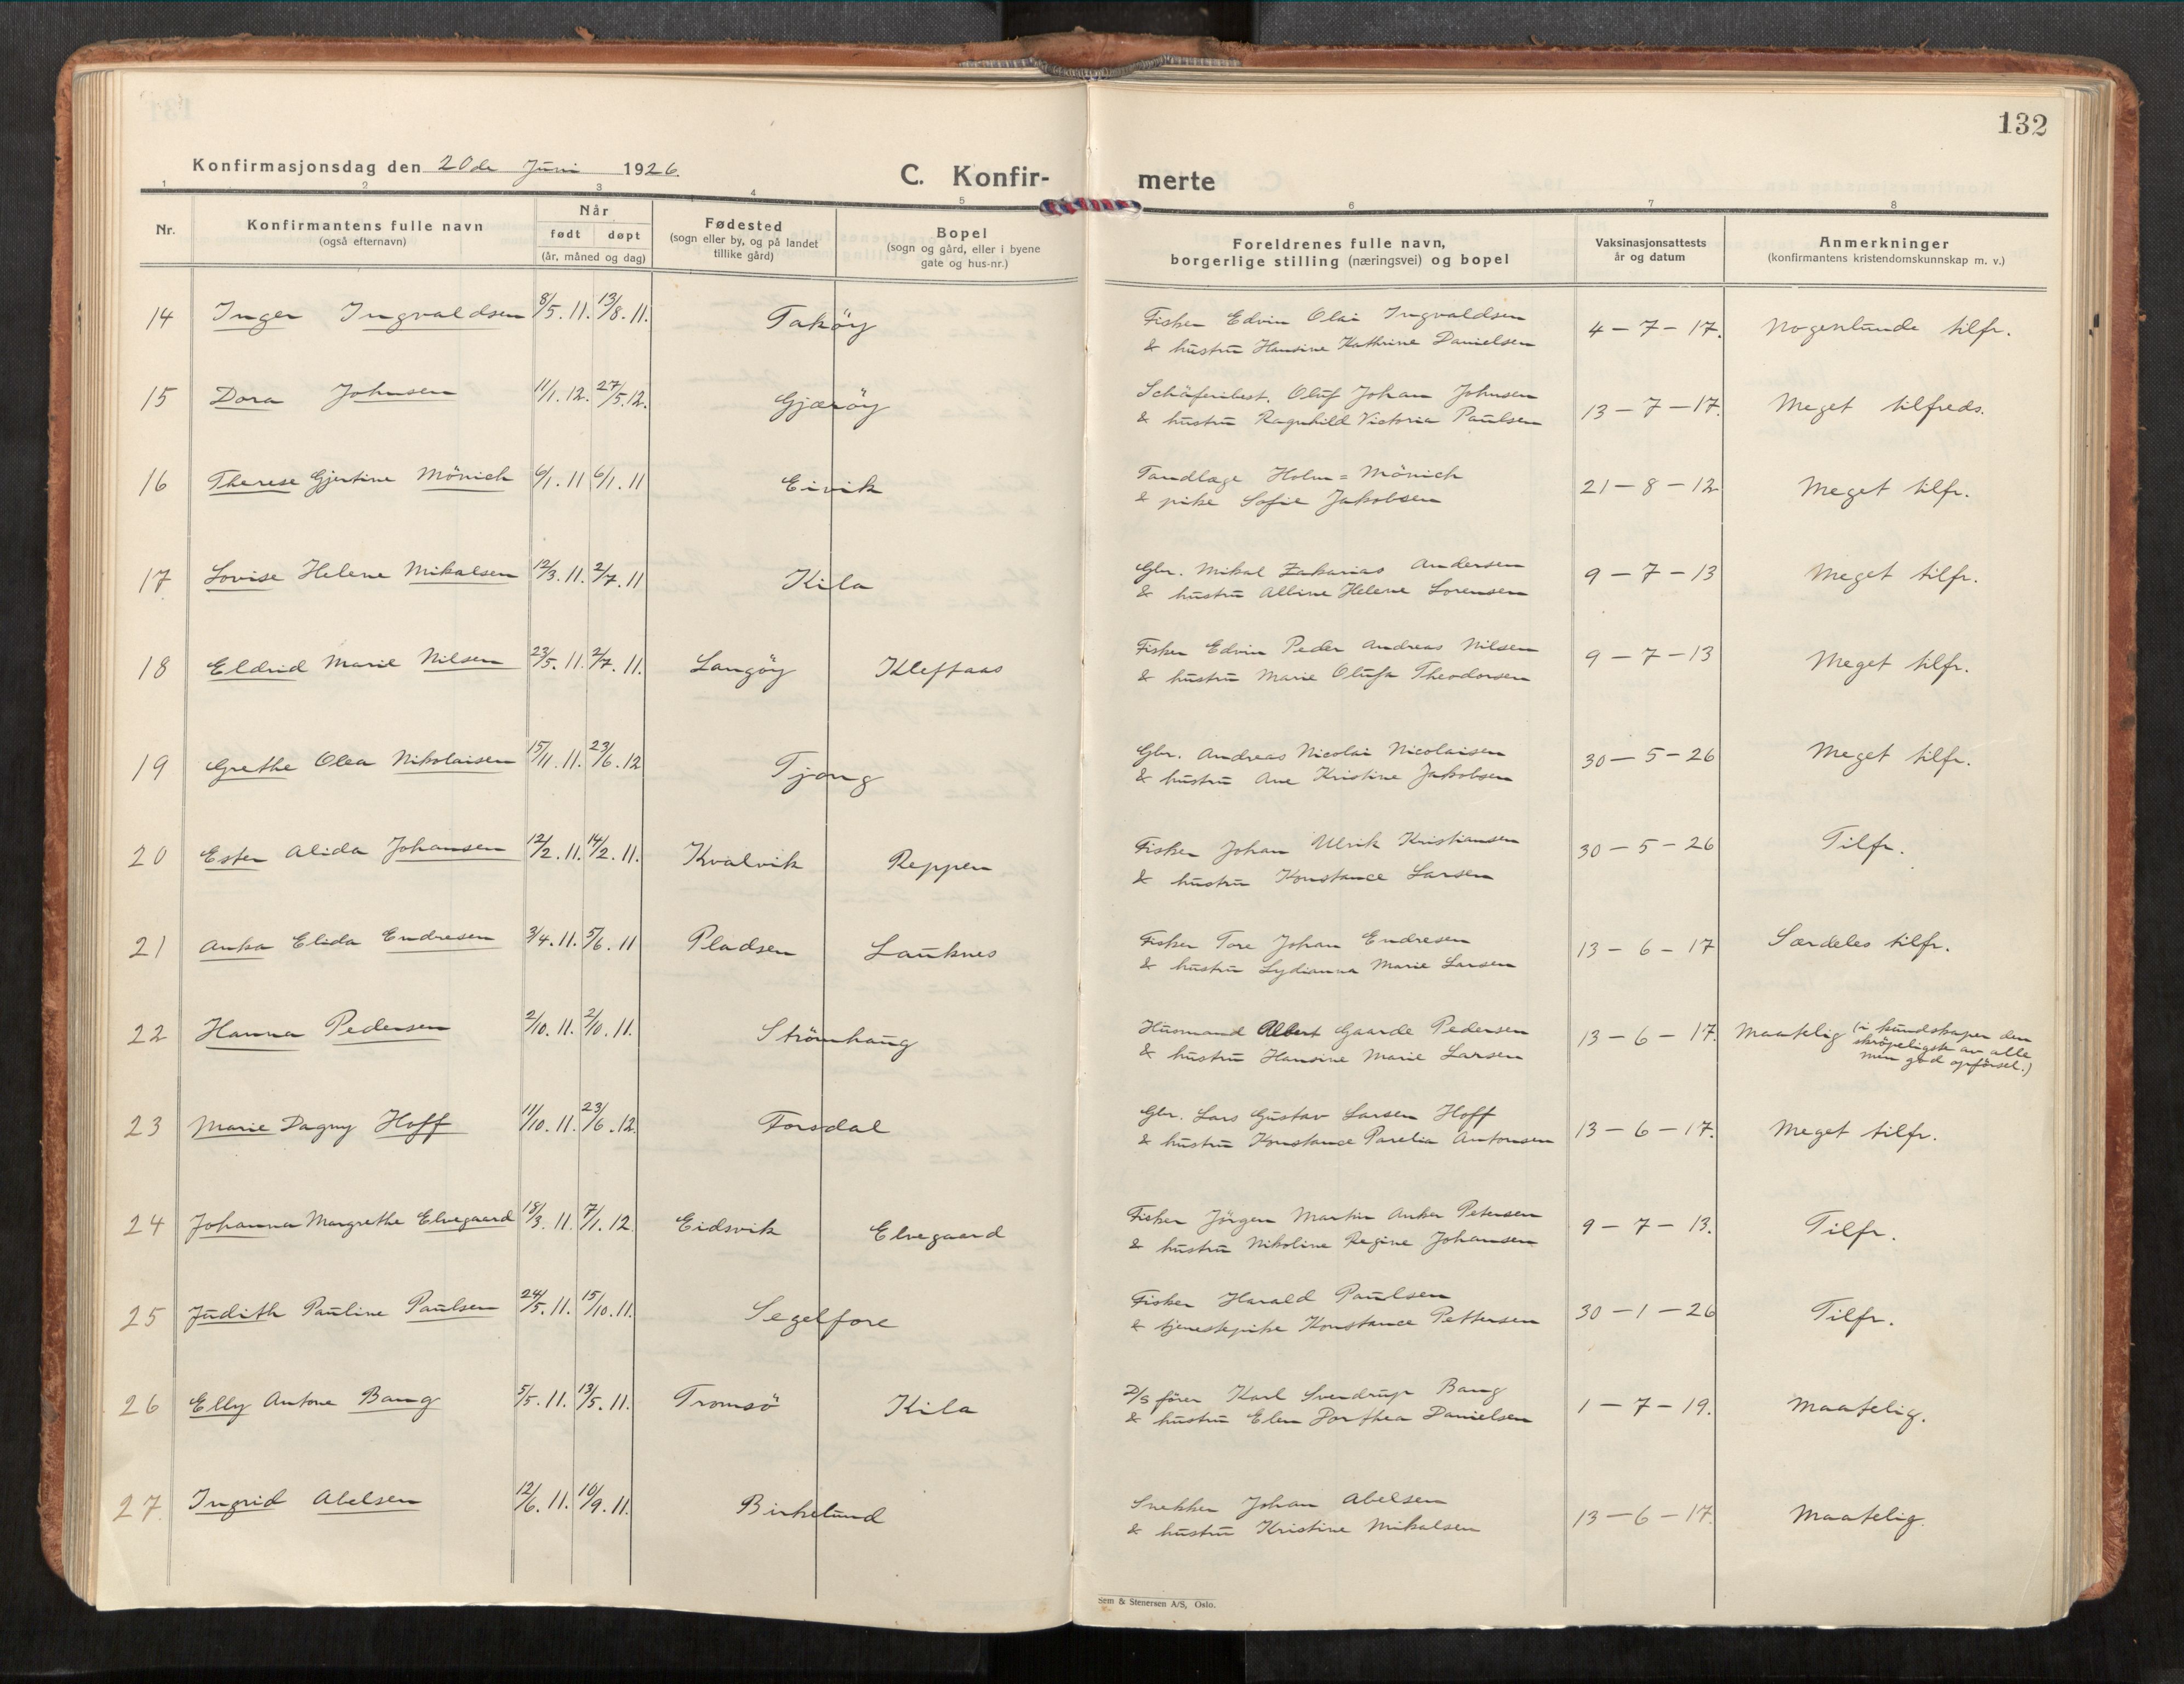 132
Konfirmasjonsdag den 20de Juni 1926.
C. Konfir-
merte
1 2 3 4 5 6 7 8
Nr. Konfirmantens fulle navn (også efternavn) Når født døpt (år, måned og dag) Fødested (sogn eller by, og på landet tillike gård) Bopel (sogn og gård, eller i byene gate og hus-nr.) Foreldrenes fulle navn, borgerlige stilling (næringsvei) og bopel Vaksinasjonsattests år og datum Anmerkninger (konfirmantens kristendomskunnskap m. v.)
14 Inger Ingvaldsen 8/5. 11. 13/8. 11. Taköy Fisker Edvin Olai Ingvaldsen 4 - 7 - 17. Nogenlunde tilfr.
& hustru Hansine Kathrine Danielsen
15 Dora Johnsen 11/1. 12. 27/5. 12. Gjæröy Schäferibest. Oluf Johan Johnsen 13 - 7 - 17. Meget tilfreds.
& hustru Ragnhild Victoria Paulsen
16 Therese Gjertine Mönich 6/1. 11 6/1. 11 Eivik Tandlæge Holm = Mönich 21 - 8 - 12 Meget tilfr.
& pike Sofie Jakobsen
17 Lovise Helene Mikalsen 12/3. 11. 2/7. 11 Kila Gbr. Mikal Zakarias Andersen 9 - 7 - 13 Meget tilfr.
& hustru Albine Helene Sorensen
18 Eldrid Marie Nilsen 23/5. 11. 2/7. 11. Langöy Kleffaas Fisker Edvin Peder Andreas Nilsen 9 - 7 - 13 Meget tilfr.
& hustru Marie Olufa Theodorsen
19 Grethe Olea Nikolaisen 15/11. 11. 23/6. 12 Tjong Gbr. Andreas Nicolai Nicolaisen 30 - 5 - 26 Meget tilfr.
& hustru Ane Kristine Jakobsen
20 Ester Alida Johansen 12/2. 11. 14/2. 11. Kvalvik Reppen Fisker Johan Ulrik Kristiansen 30 - 5 - 26 Tilfr.
& hustru Konstance Larsen
21 Anka Elida Endresen 3/4. 11. 5/6. 11 Pladsen Lauknes Fisker Tore Johan Endresen 13 - 6 - 17 Særdeles tilfr.
& hustru Lydianna Marie Larsen
22 Hanna Pedersen 2/10. 11. 2/10. 11. Strömhaug Husmand Albert Gaarde Pedersen 13 - 6 - 17. Maatelig (i kundskaper den
& hustru Hansine Marie Larsen skröpeligste av alle
men god opförsel.)
23 Marie Dagny Hoff 11/10. 11. 23/6. 12. Forsdal Gbr. Lars Gustav Larsen Hoff 13 - 6 - 17. Meget tilfr.
& hustru Konstance Parelia Antonsen
24 Johanna Margrethe Elvegaard 18/3. 11. 7/1. 12. Eidsvik Elvegaard Fisker Jörgen Martin Anker Petersen 9 - 7 - 13. Tilfr.
& hustru Nikoline Regine Johansen
25 Judith Pauline Paulsen 24/5. 11. 15/10. 11. Segelfore Fisker Harald Paulsen 30 - 1 - 26 Tilfr.
& tjenestepike Konstance Pettersen
26 Elly Antone Bang 5/5. 11. 13/5. 11. Tromsö Kila D/S förer Karl Sverdrup Bang 1 - 7 - 19. Maatelig.
& hustru Elen Dorthea Danielsen
27. Ingrid Abelsen 12/6. 11. 10/9. 11. Birkelund Snekker Johan Abelsen 13 - 6 - 17. Maatelig.
& hustru Kristine Mikalsen
Sem & Stenersen A/S, Oslo.